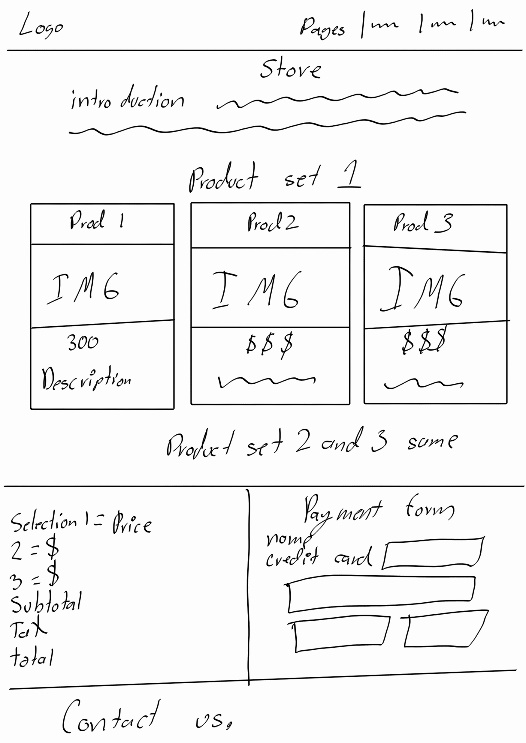 Logo Pages
Store
introduction
Product set 1
Prod 1 Prod 2 Prod 3
IMG IMG IMG
300 $$$ $$$
Description
Product set 2 and 3 same
Selection 1 = Price
2 = $
3 = $
Subtotal
Tax
total
Payment form
name
credit card
Contact us.